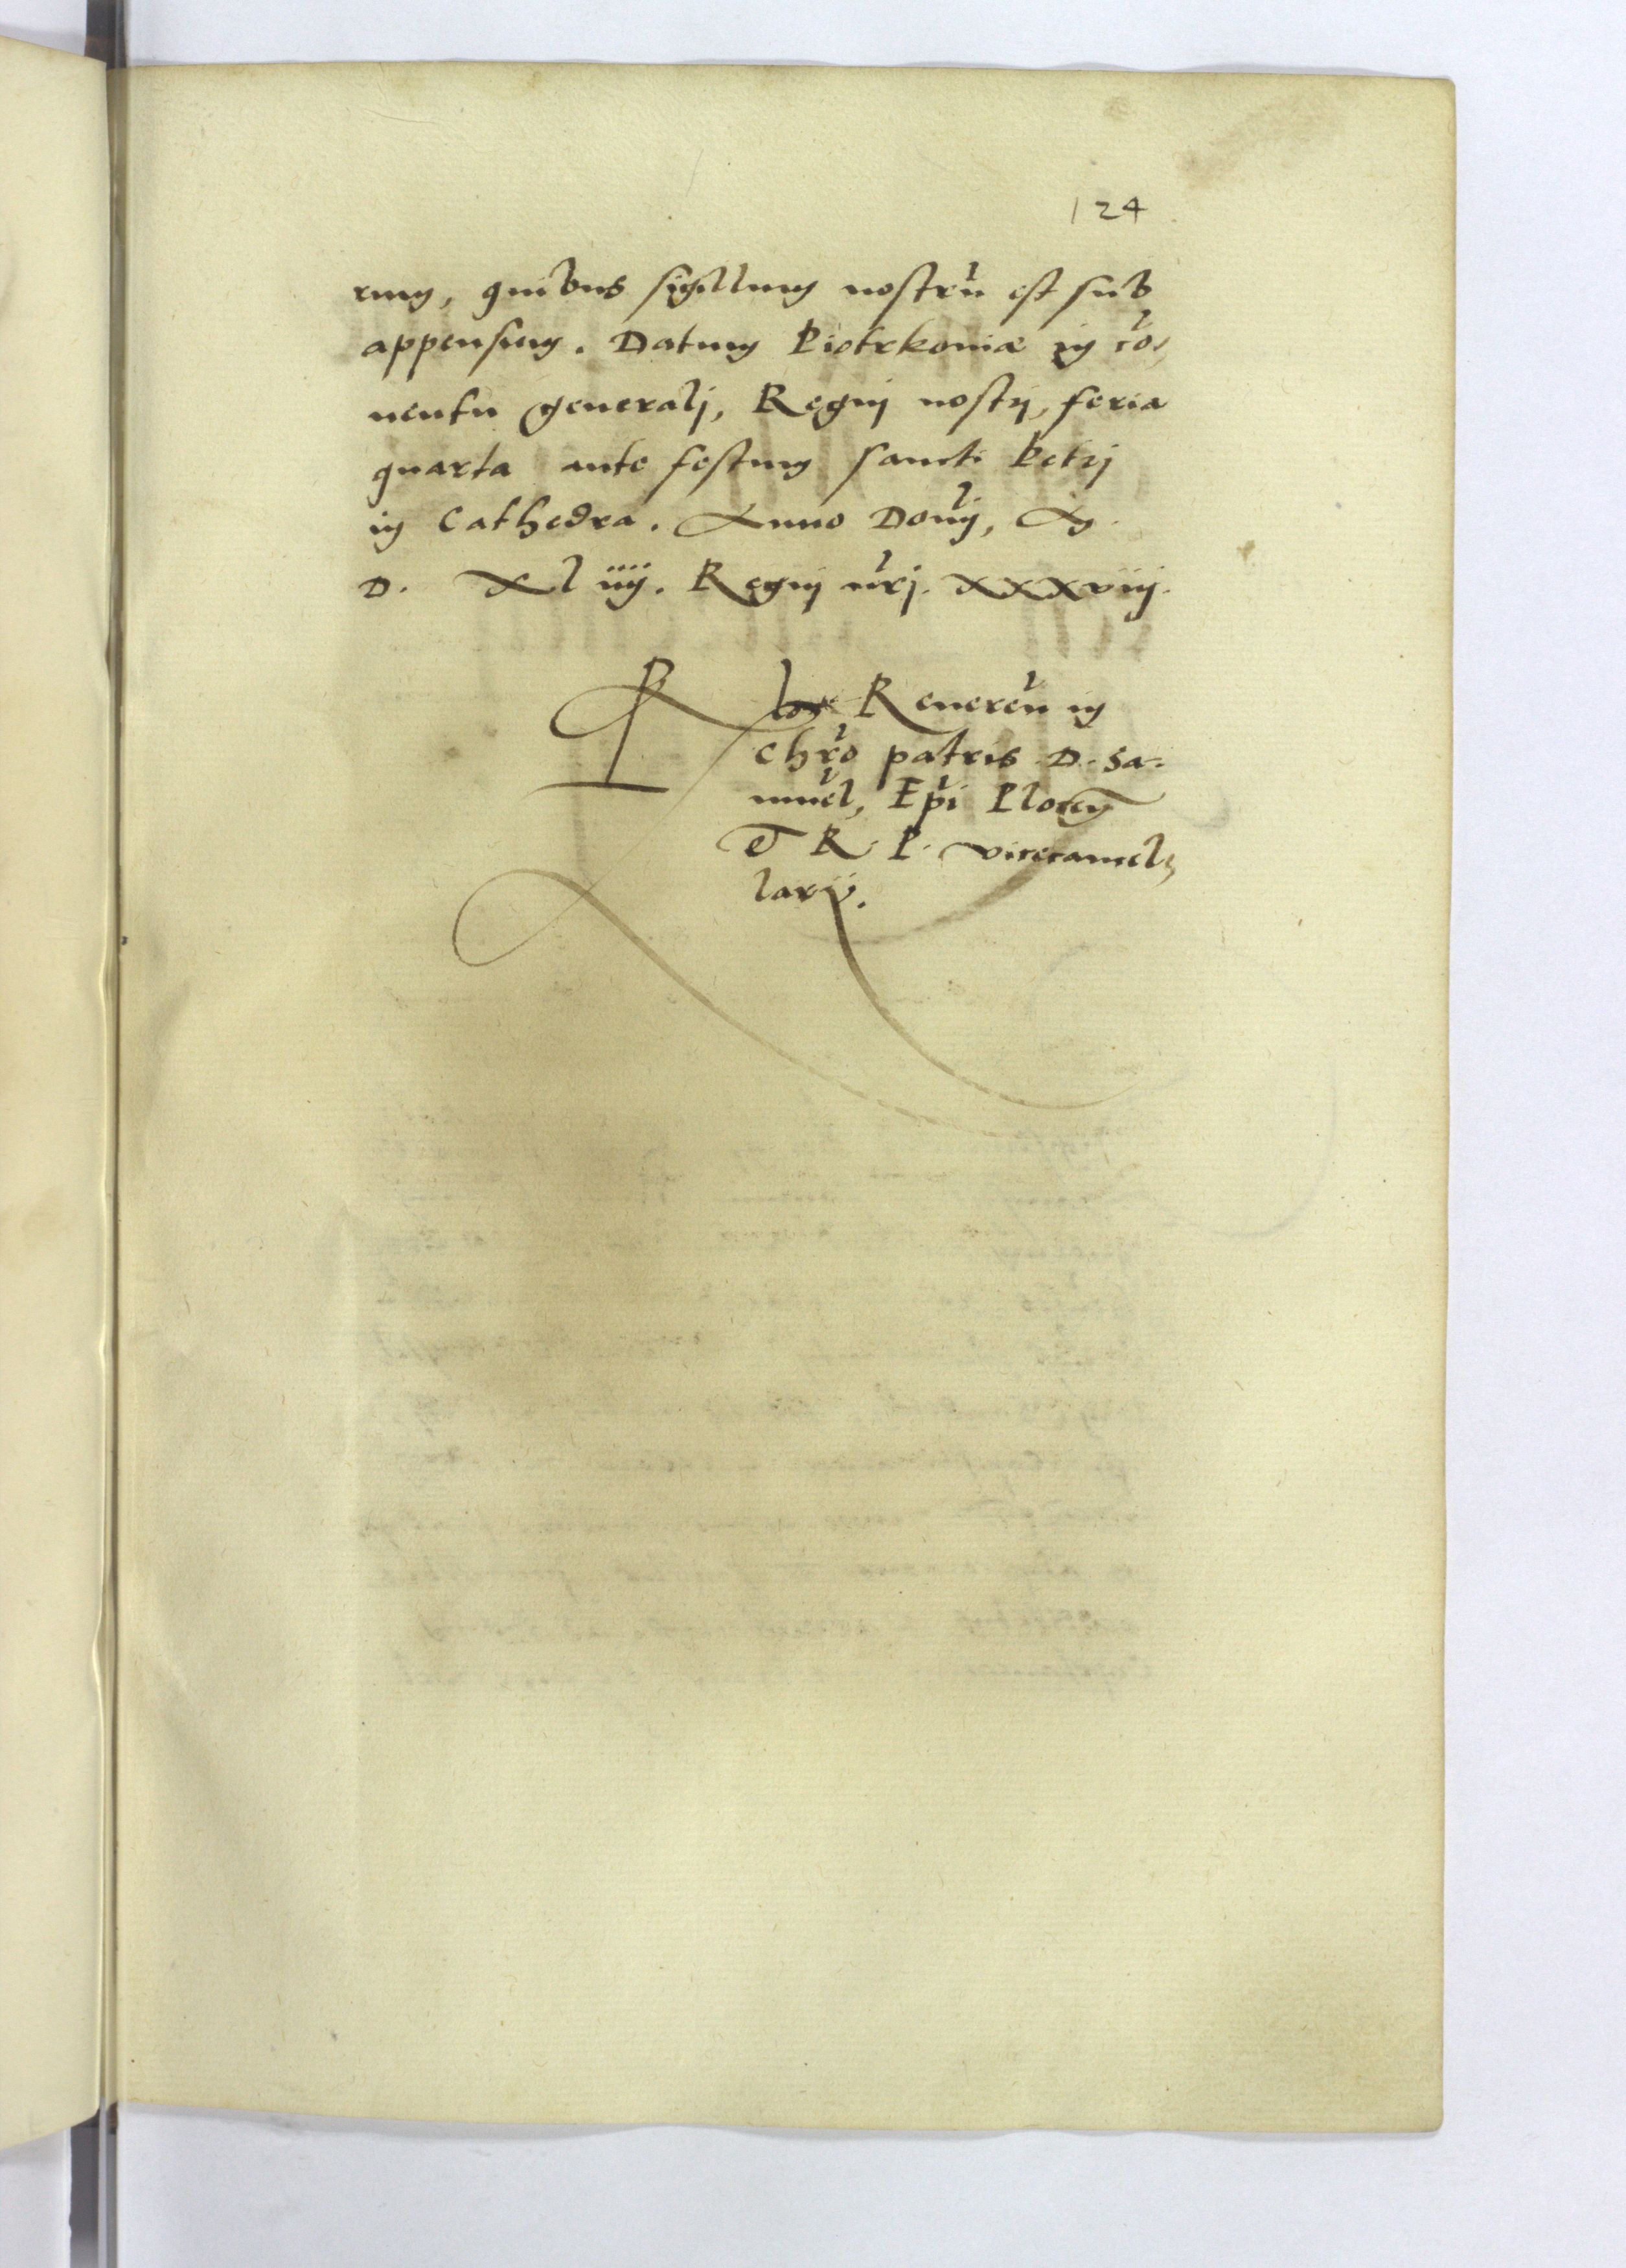 124
rum, quibus sigillum nostrū est sub
appensum. Datum Piotrkoviæ in cō,
uentu generalj, Regnj nostrj, feria
quarta ante festum sanctj Petrj
in Cathedra. Anno Domj,
D. XLiiij. Regnj nrj. xxxviij.
R Reueren in
Chro patris D. Sa-
muel, Epi Plocen
et R. P. vicecancel,
larij.